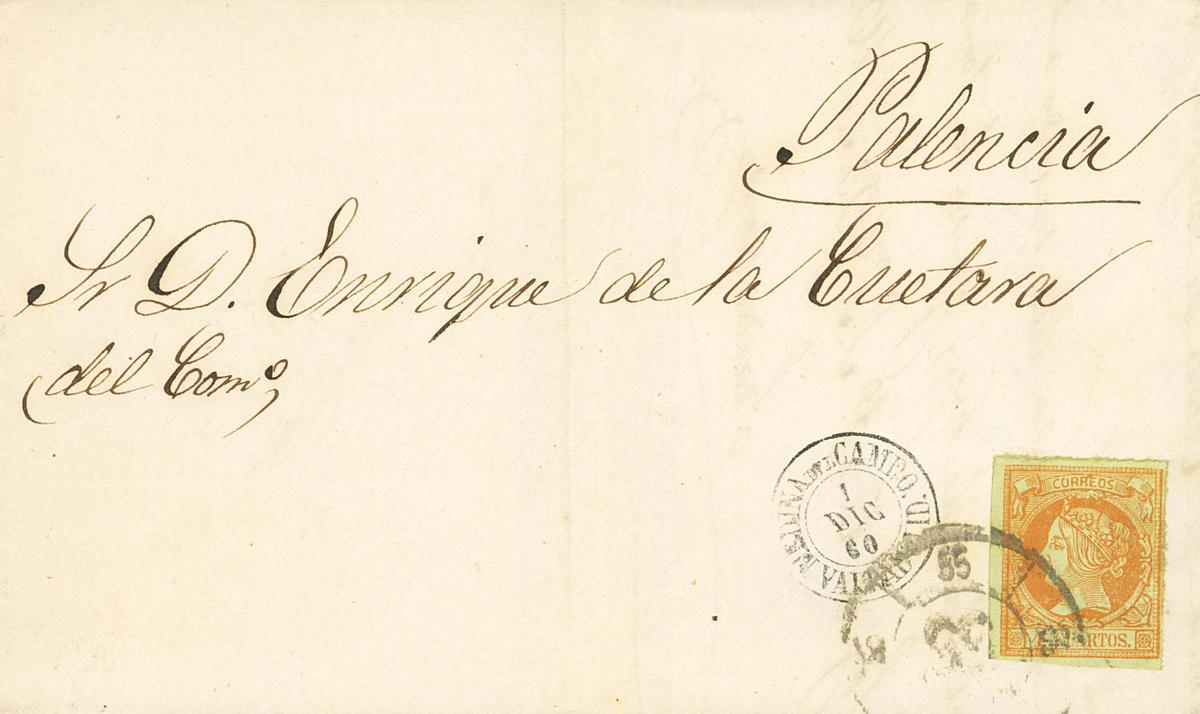 Palencia
Sr D. Enrique de la Cuetara
del Comº
MEDINA DEL CAMPO.
1
DIC
60
CORREOS
CUARTOS.
55